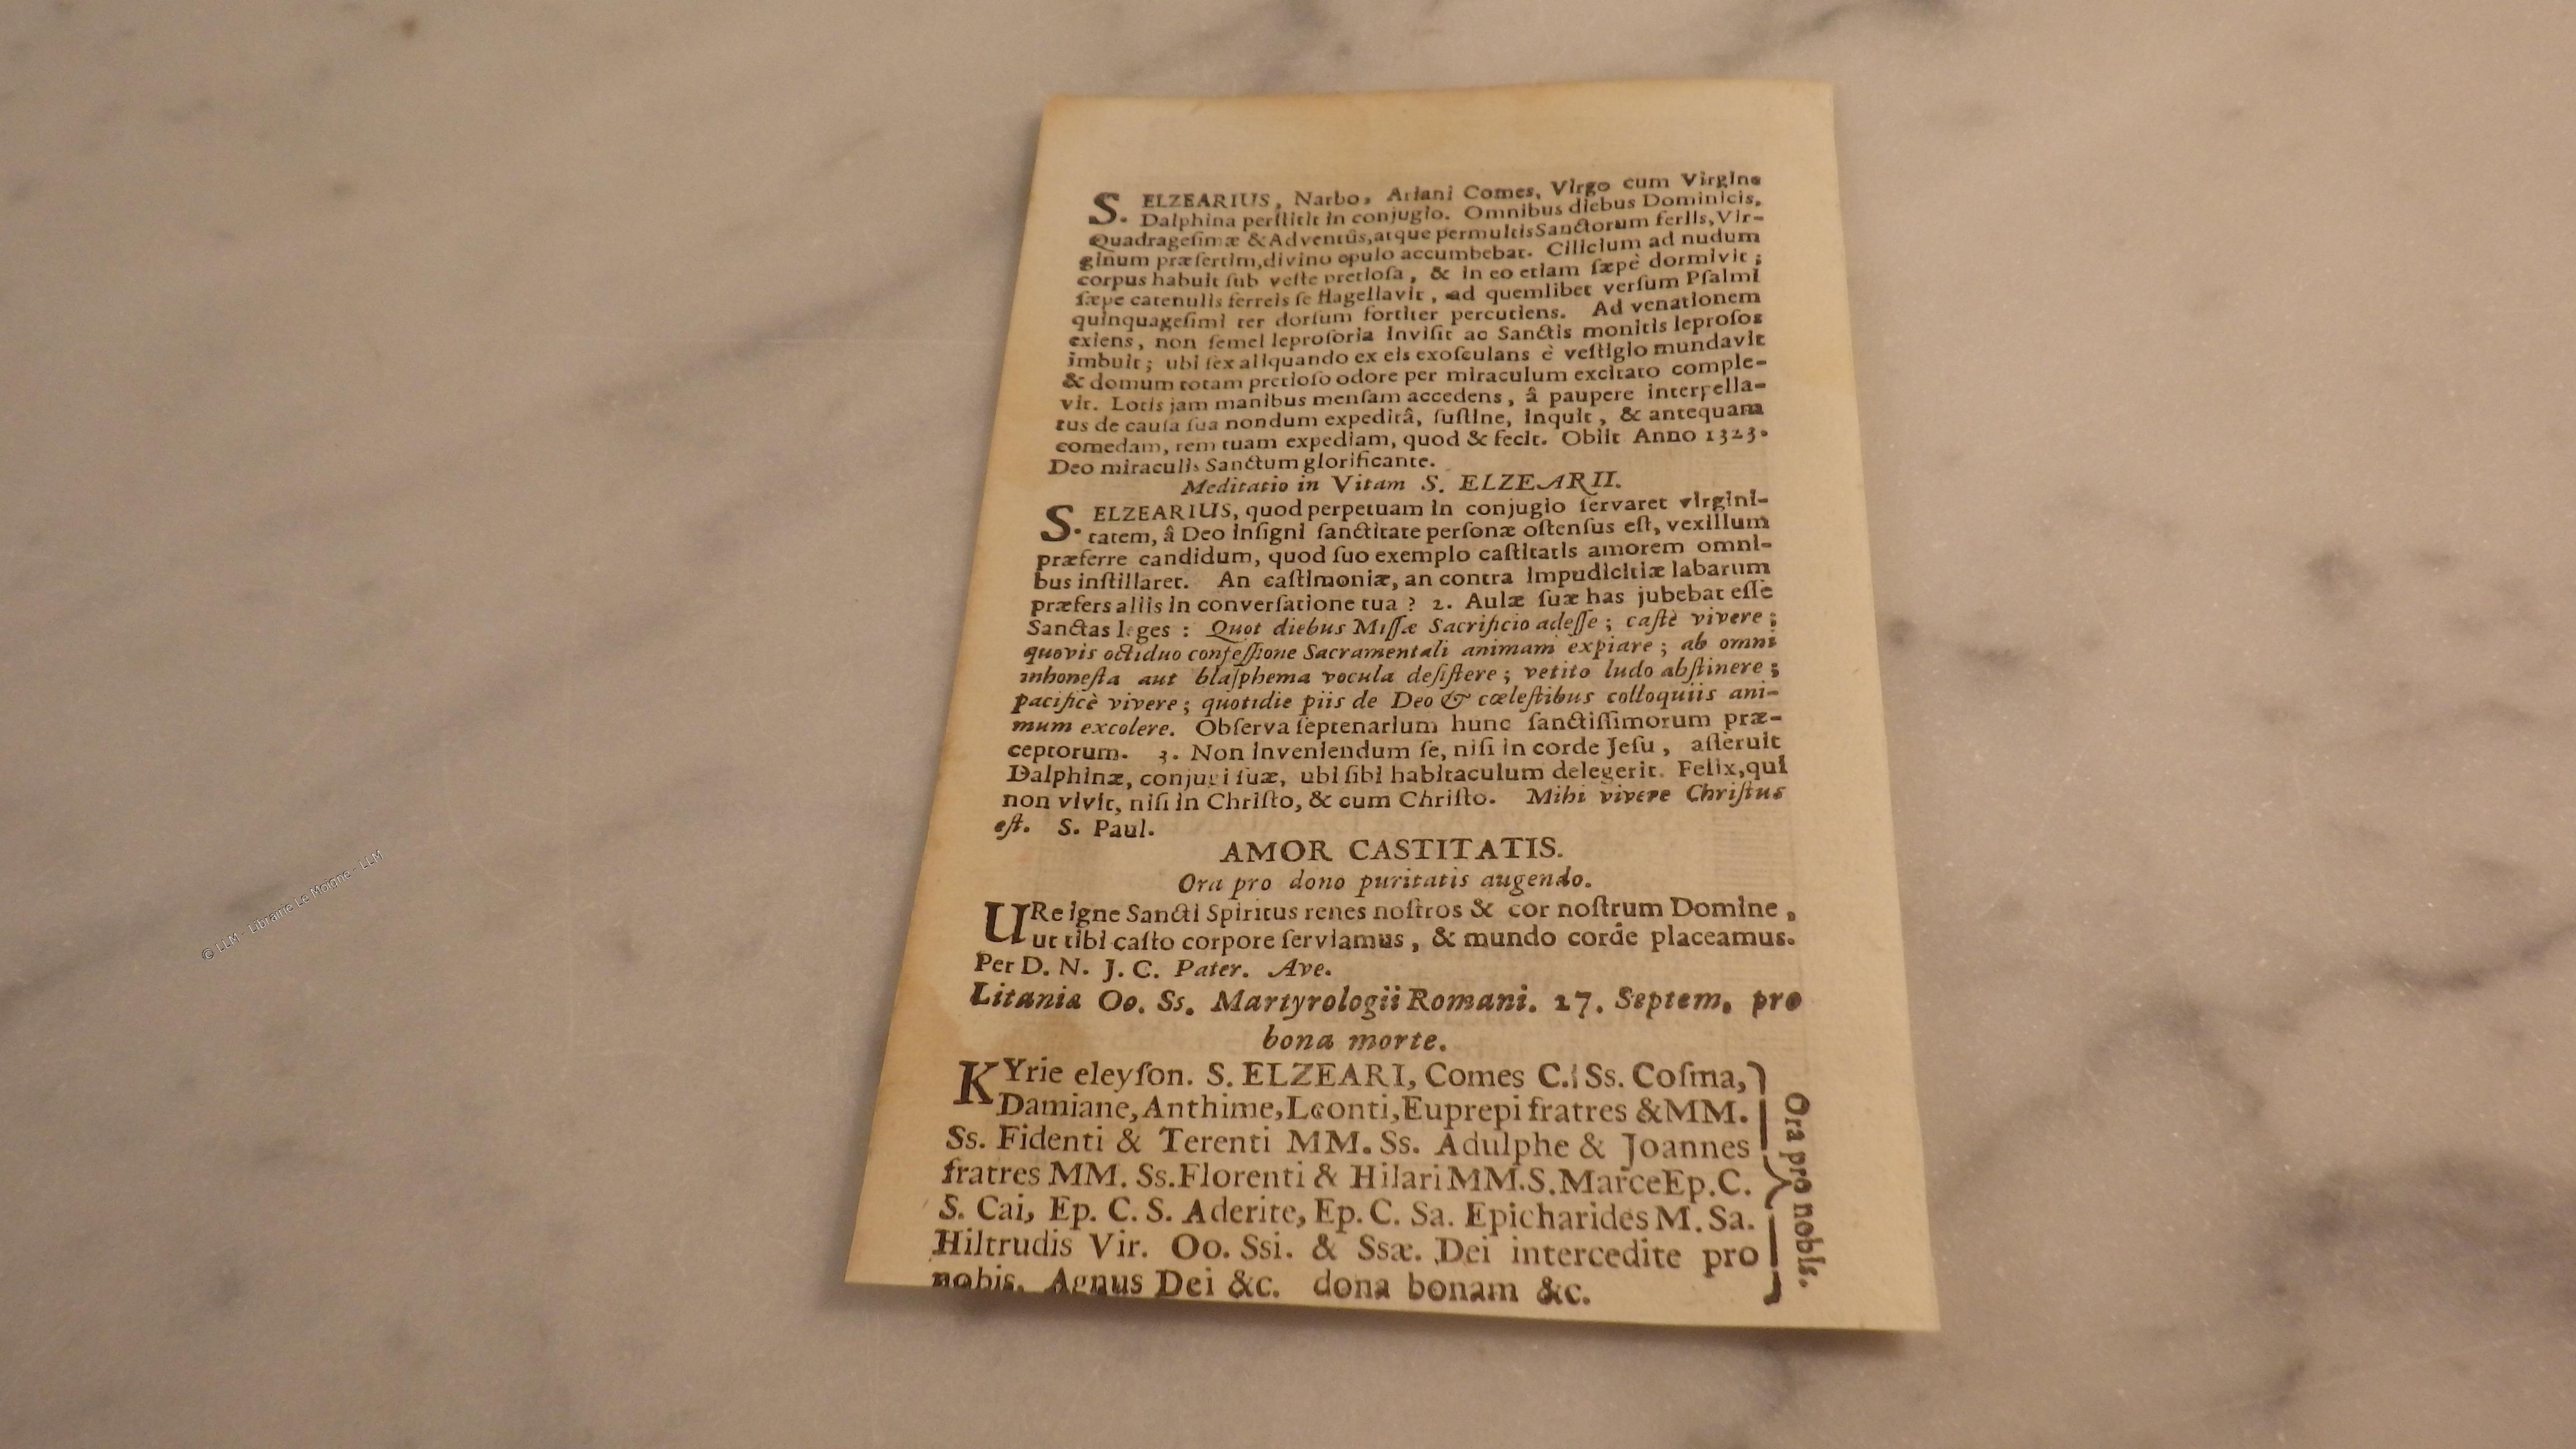 S. ELZEARIUS, Narbo, Ariani Comes, Virgo cum Virgine
Dalphina perstitit in conjugio. Omnibus diebus Dominicis,
Quadragesimæ & Adventûs, atque permultis Sanctorum feriis, Vir-
ginum præsertim, divino epulo accumbebat. Cilicium ad nudum
corpus habuit sub veste pretiosa, & in eo etiam sæpè dormivit;
sæpe catenulis ferreis se flagellavit, ad quemlibet versum Psalmi
quinquagesimi ter dorsum fortiter percutiens. Ad venationem
exiens, non semel leprosoria invisit ac Sanctis monitis leprosos
imbuit; ubi sex aliquando ex eis exosculans è vestigio mundavit
& domum totam pretioso odore per miraculum excitato comple-
vit. Lotis jam manibus mensam accedens, â paupere interpella-
tus de causa sua nondum expeditâ, sustine, inquit, & antequam
comedam, rem tuam expediam, quod & fecit. Obiit Anno 1323.
Deo miraculis Sanctum glorificante.
Meditatio in Vitam S. ELZEARII.
S. ELZEARIUS, quod perpetuam in conjugio servaret virgini-
tatem, â Deo insigni sanctitate personæ ostensus est, vexillum
præferre candidum, quod suo exemplo castitatis amorem omni-
bus instillaret. An castimoniæ, an contra impudicitiæ labarum
præfers aliis in conversatione tua ? 2. Aulæ suæ has jubebat esse
Sanctas leges : Quot diebus Missæ Sacrificio adesse ; castè vivere ;
quovis octiduo confessione Sacramentali animam expiare ; ab omni
inhonesta aut blasphema vocula desistere ; vetito ludo abstinere ;
pacificè vivere ; quotidie piis de Deo & cœlestibus colloquiis ani-
mum excolere. Observa septenarium hunc sanctissimorum præ-
ceptorum. 3. Non inveniendum se, nisi in corde Jesu, asseruit
Dalphinæ, conjugi suæ, ubi sibi habitaculum delegerit. Felix, qui
non vivit, nisi in Christo, & cum Christo. Mihi vivere Christus
est. S. Paul.
AMOR CASTITATIS.
Ora pro dono puritatis augendo.
URe igne Sancti Spiritus renes nostros & cor nostrum Domine,
ut tibi casto corpore serviamus, & mundo corde placeamus.
Per D. N. J. C. Pater. Ave.
Litania Oo. Ss. Martyrologii Romani. 27. Septem. pro
bona morte.
KYrie eleyson. S. ELZEARI, Comes C. Ss. Cosma,
Damiane, Anthime, Leonti, Euprepi fratres & MM.
Ss. Fidenti & Terenti MM. Ss. Adulphe & Joannes
fratres MM. Ss. Florenti & Hilari MM. S. Marce Ep. C.
S. Cai, Ep. C. S. Aderite, Ep. C. Sa. Epicharides M. Sa.
Hiltrudis Vir. Oo. Ssi. & Ssæ. Dei intercedite pro
nobis. Agnus Dei &c. dona bonam &c.
Ora pro nobis.
© LLM - Librairie Le Moigne - LLM